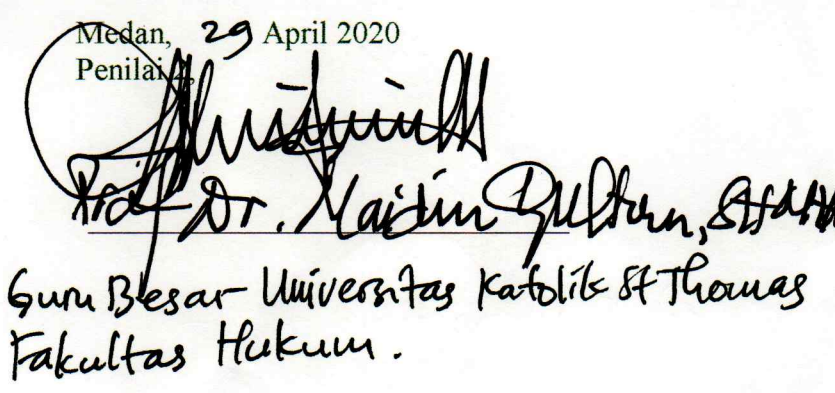 Medan, 29 April 2020
Penilai 2,
Prof Dr. Maidin Gultom, SH, M.Hum
Guru Besar Universitas Katolik St Thomas
Fakultas Hukum.